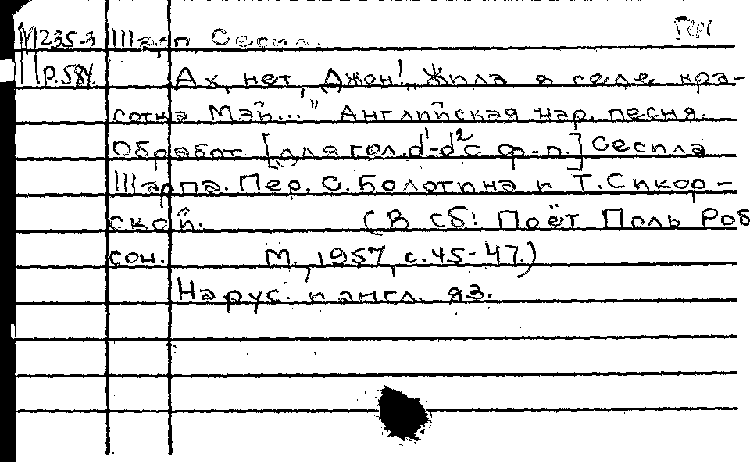 М235-3 Шарп Сесил.
П р.584 Ах, нет, Джон! „Жила в селе кра-
сотка Мэй..." Английская нар. песня.
Обработ [для гол. d¹-d² с ф-п.] Сесила
Шарпа. Пер. С. Болотина и Т. Сикор-
ской. (В сб: Поёт Поль Роб
сон. М., 1957, с.45-47.)
На рус. и англ. яз.